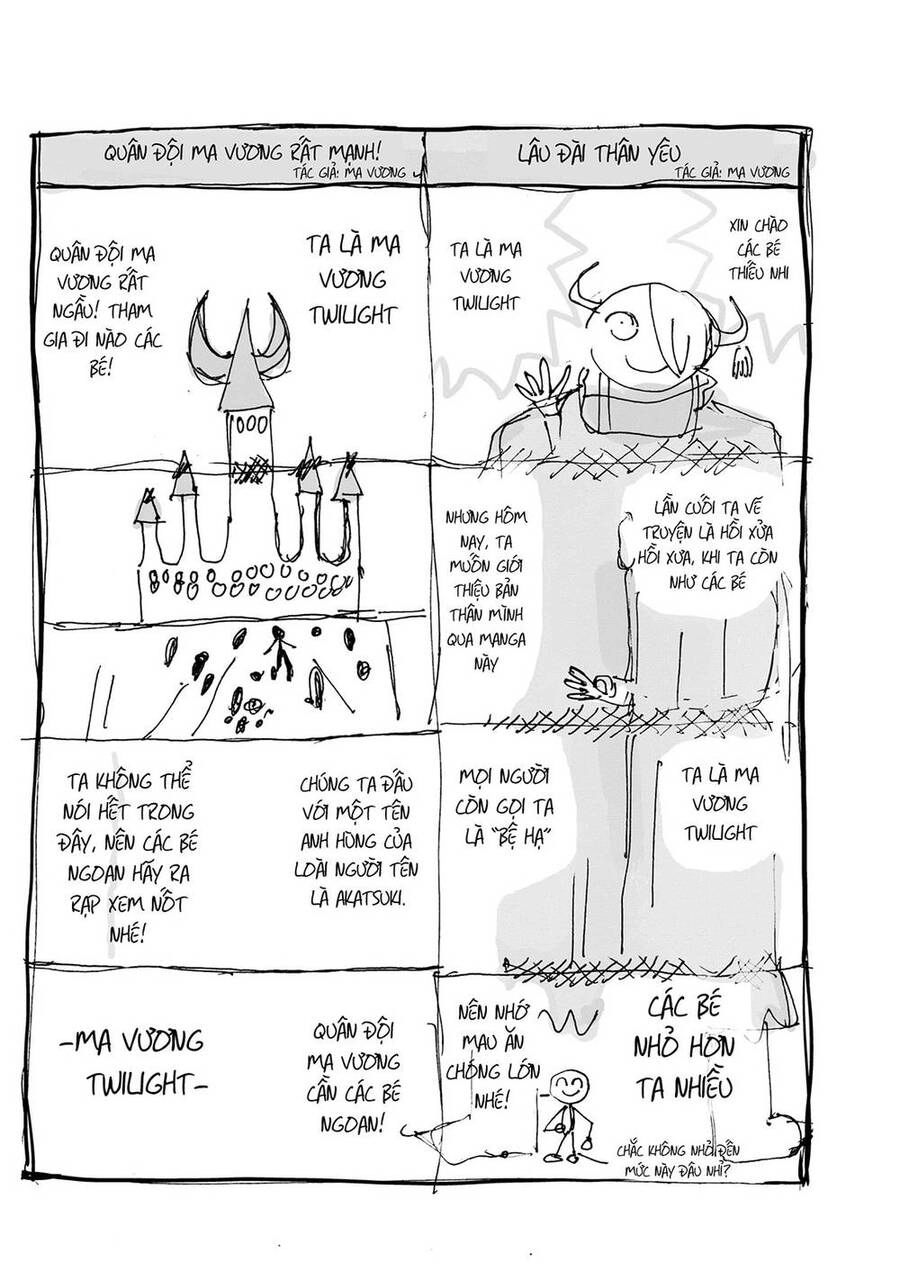 LÂU ĐÀI THÂN YÊU
TÁC GIẢ: MA VƯƠNG
XIN CHÀO
CÁC BÉ
THIẾU NHI
TA LÀ MA
VƯƠNG
TWILIGHT
LẦN CUỐI TA VẼ
TRUYỆN LÀ HỒI XỬA
HỒI XƯA, KHI TA CÒN
NHƯ CÁC BÉ
NHƯNG HÔM
NAY, TA
MUỐN GIỚI
THIỆU BẢN
THÂN MÌNH
QUA MANGA
NÀY
TA LÀ MA
VƯƠNG
TWILIGHT
MỌI NGƯỜI
CÒN GỌI TA
LÀ "BỆ HẠ"
CÁC BÉ
NHỎ HƠN
TA NHIỀU
NÊN NHỚ
MAU ĂN
CHÓNG LỚN
NHÉ!
CHẮC KHÔNG NHỎ ĐẾN
MỨC NÀY ĐÂU NHỈ?
QUÂN ĐỘI MA VƯƠNG RẤT MẠNH!
TÁC GIẢ: MA VƯƠNG
TA LÀ MA
VƯƠNG
TWILIGHT
QUÂN ĐỘI MA
VƯƠNG RẤT
NGẦU! THAM
GIA ĐI NÀO CÁC
BÉ!
CHÚNG TA ĐẤU
VỚI MỘT TÊN
ANH HÙNG CỦA
LOÀI NGƯỜI TÊN
LÀ AKATSUKI.
TA KHÔNG THỂ
NÓI HẾT TRONG
ĐÂY, NÊN CÁC BÉ
NGOAN HÃY RA
RẠP XEM NỐT
NHÉ!
QUÂN ĐỘI
MA VƯƠNG
CẦN CÁC BÉ
NGOAN!
-MA VƯƠNG
TWILIGHT-